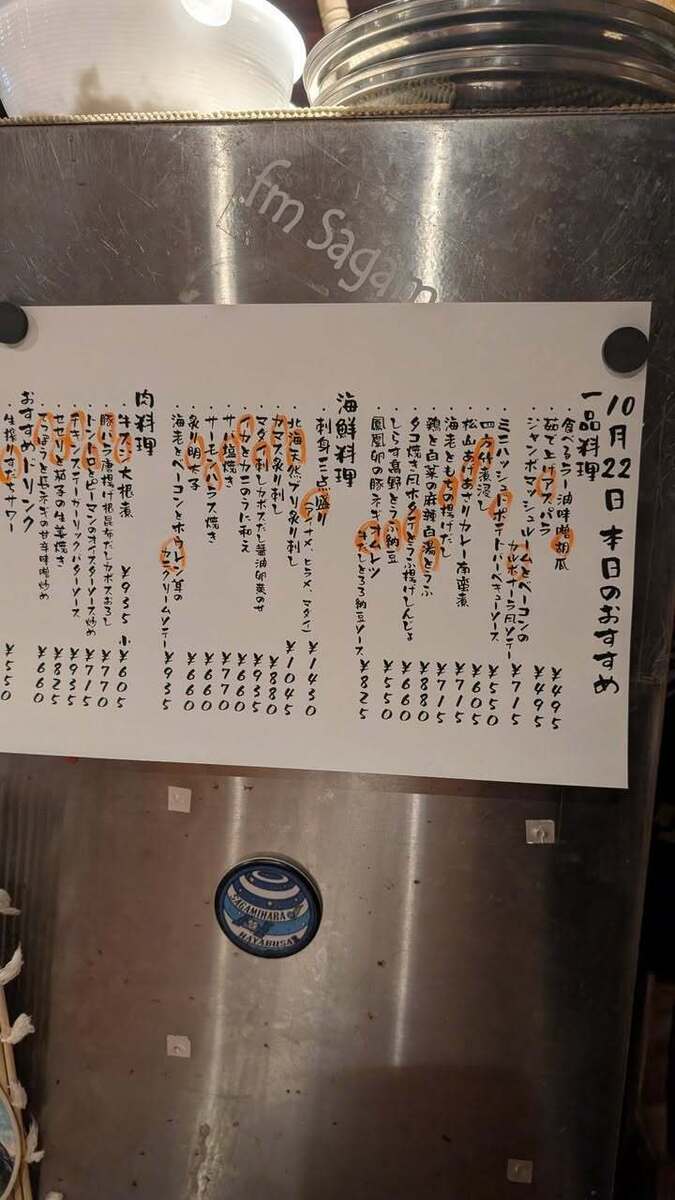 fm Sagam
10月22日 本日のおすすめ
一品料理
・食べるラー油味噌胡瓜 ¥495
・茹で上げアスパラ ¥495
・ジャンボマッシュルームとベーコンの
カルボナーラ風ソテー ¥715
・ミニハッシュドポテトバーベキューソース ¥550
・四方竹煮浸し ¥605
・松山あげあさりカレー南蛮煮 ¥715
・海老ともちの揚げだし ¥715
・鶏と白菜の麻辣白湯とうふ ¥880
・タコ焼き風ホタテとうふ揚げしんじょ ¥660
・しらす高野とうふ納豆 ¥550
・鳳凰卵の豚ネギオムレツ
きたしとろろ納豆ソース ¥825
海鮮料理
・刺身三点盛り
(アイナメ、ヒラメ、マダイ) ¥1430
・北海天然ブリ炙り刺し ¥1045
・カマス炙り刺し ¥880
・マダイ刺しカボスだし醤油卵黄のせ ¥935
・イカとカニのうに和え ¥660
・サバ塩焼き ¥770
・サーモンハラス焼き ¥660
・炙り明太子 ¥660
・海老とベーコンとホウレン草の
カニクリームソテー ¥935
肉料理
・牛スジ大根煮 ¥935 小¥605
・豚バラ唐揚げ根昆布だしカボスおろし ¥770
・トントロとピーマンのオイスターソース炒め ¥715
・チキンステーキガーリックバターソース ¥935
・せせりと茄子の生姜焼き ¥825
・てっぽうと長ネギの甘辛味噌炒め ¥660
おすすめドリンク
・生搾りすだちサワー ¥550
SAGAMIHARA
HAYABUSA